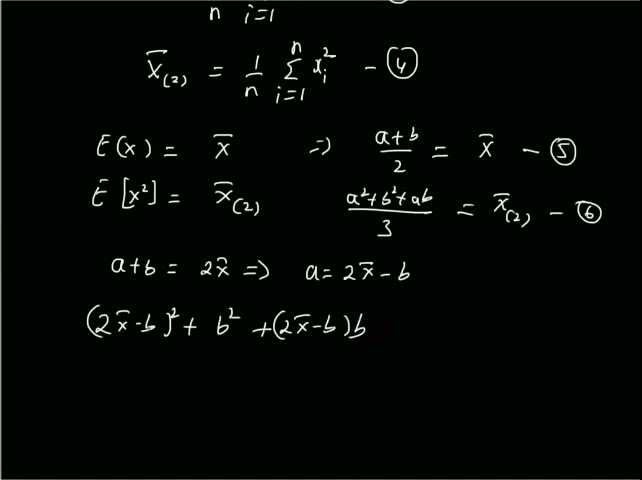 n i=1
x̄₍₂₎ = 1/n Σⁿᵢ₌₁ xᵢ² - ④
E(x) = x̄ ⇒ (a+b)/2 = x̄ - ⑤
E[x²] = x̄₍₂₎ (a²+b²+ab)/3 = x̄₍₂₎ - ⑥
a+b = 2x̄ ⇒ a = 2x̄-b
(2x̄-b)² + b² + (2x̄-b)b